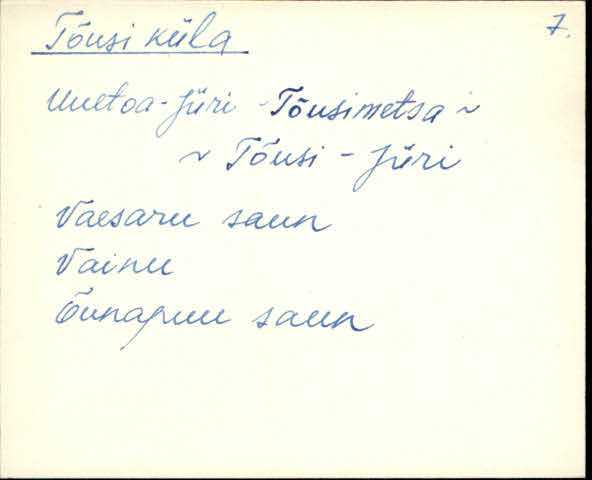 Tõusi küla 7.
Uuetoa-Jüri - Tõusimetsa ~
~ Tõusi - Jüri
Vaesaru saun
Vainu
Õunapuu saun